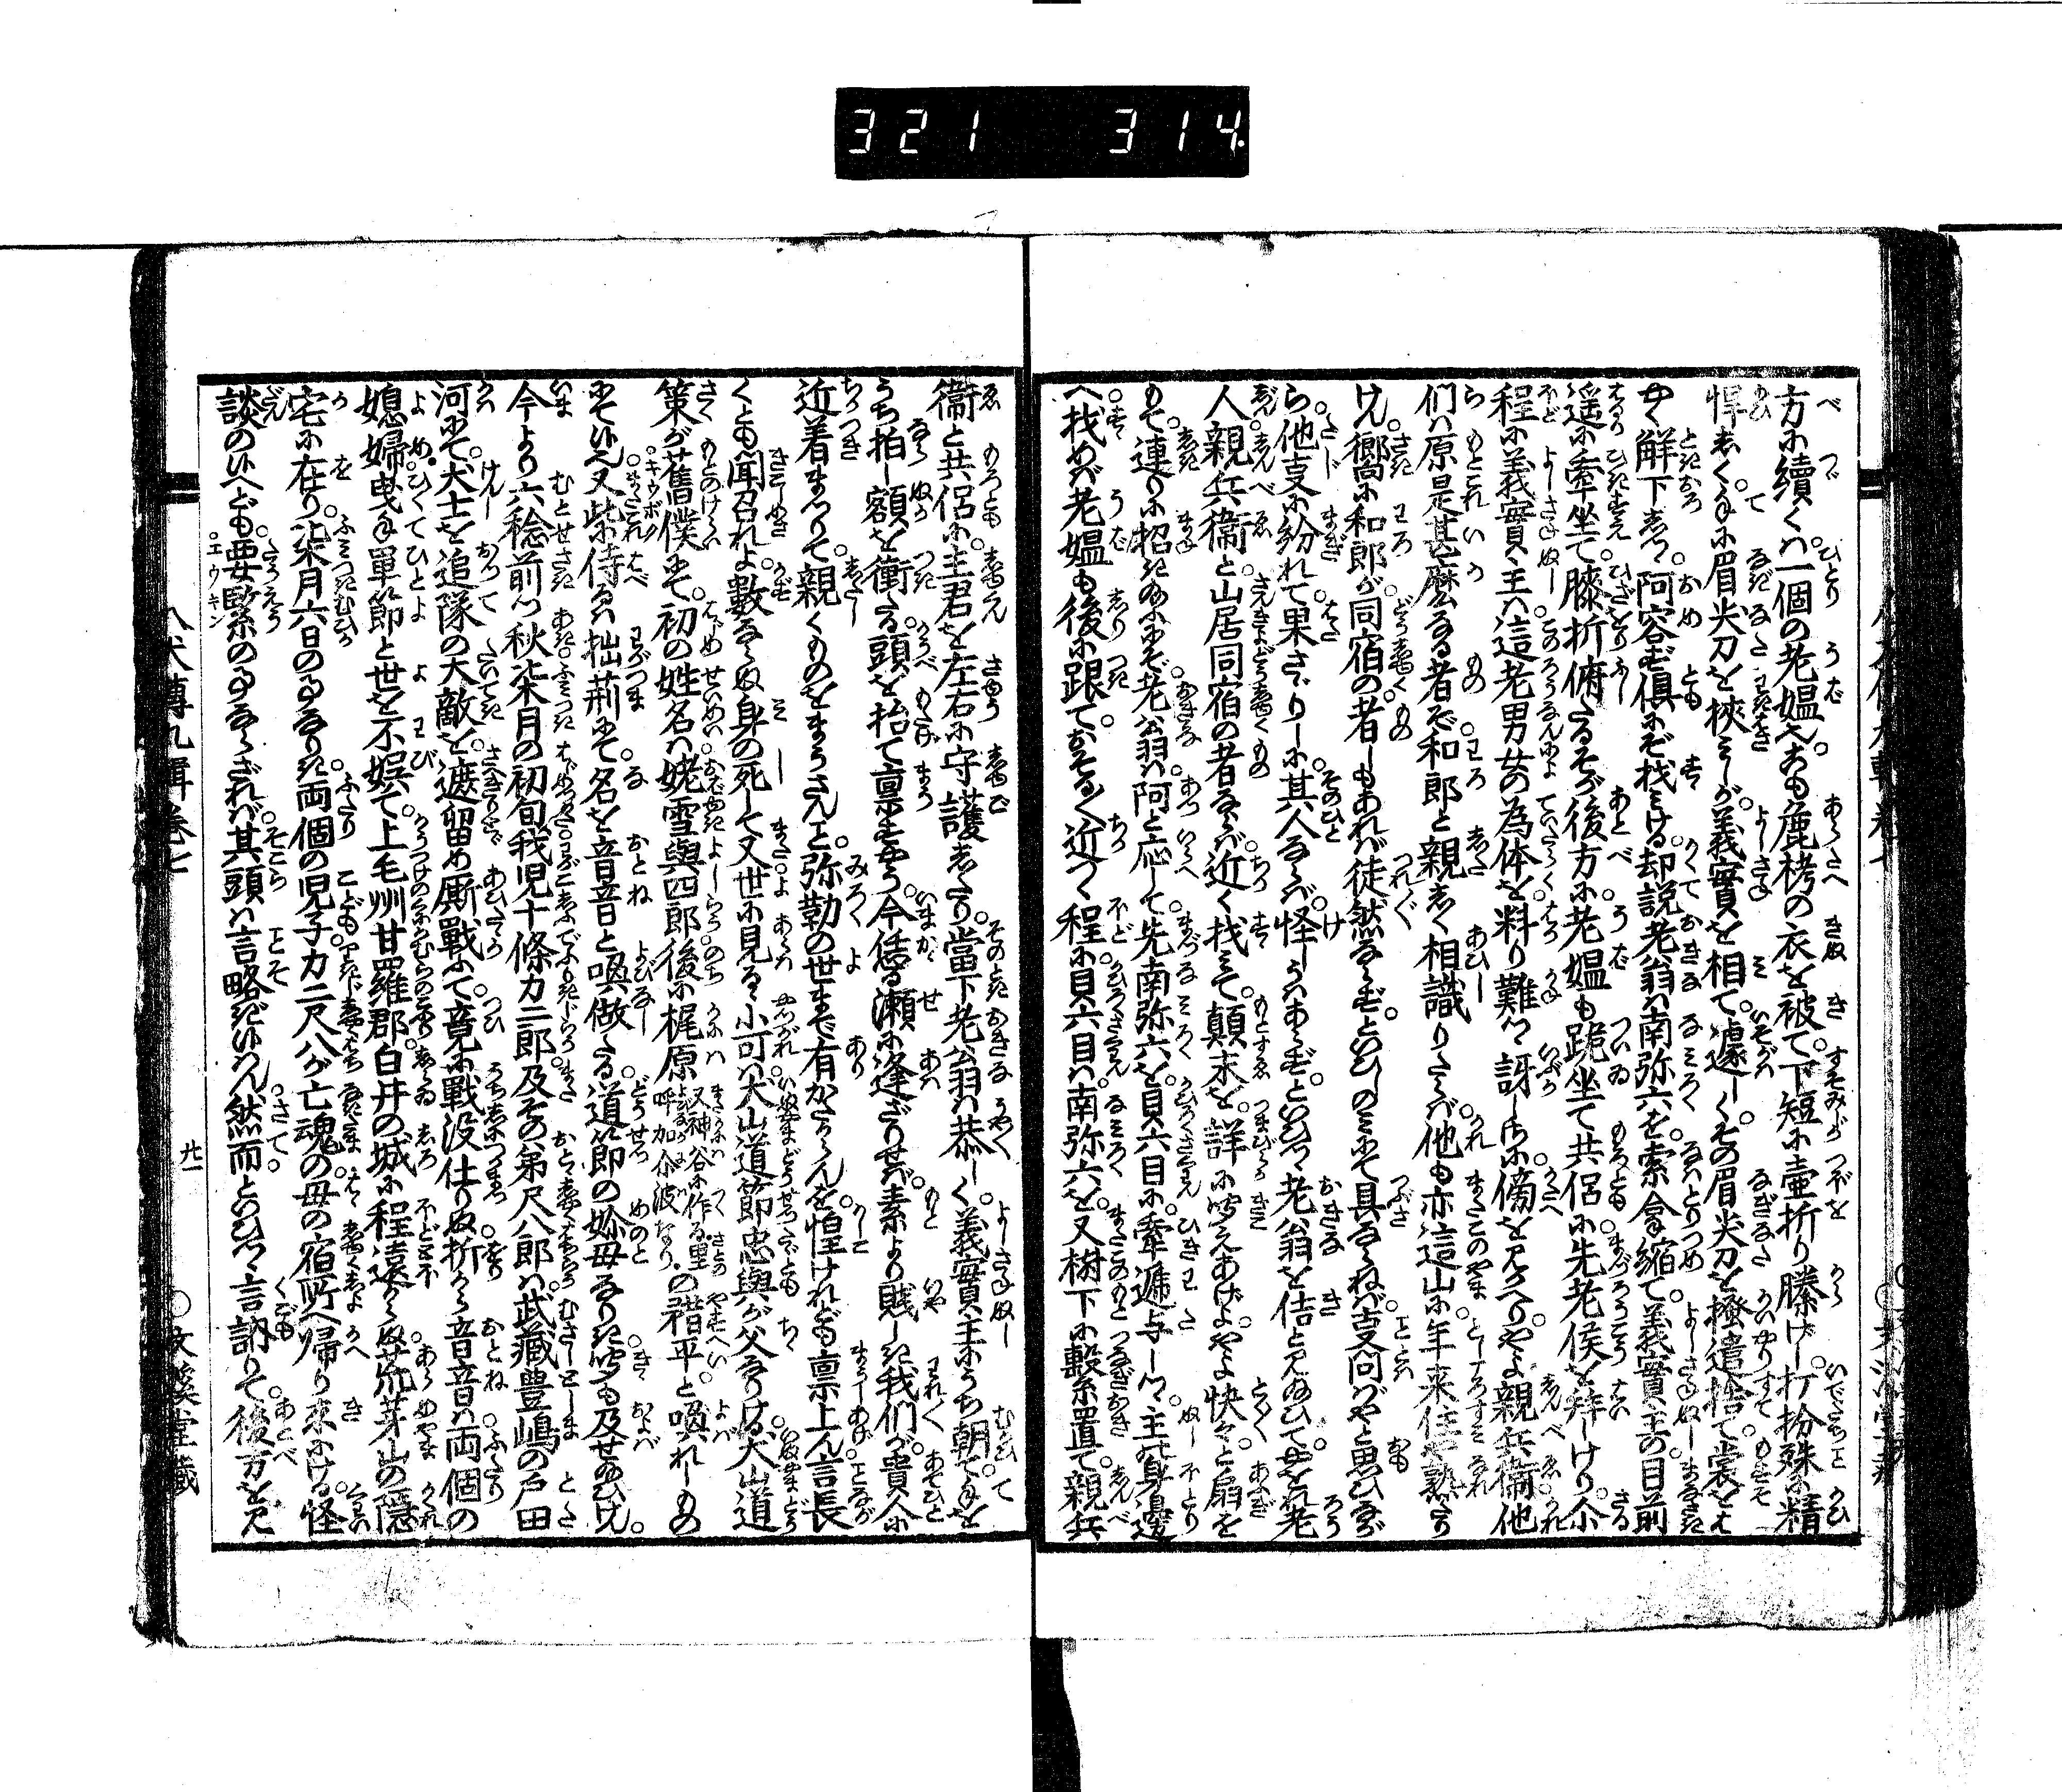 321 314
方に續くは一個の老媼也。おも麁栲の衣を被て。下短に壷折り滕げし。打扮殊に精
悍しく。手に眉尖刀を挾みしが。義實を相て。遽しく。その眉尖刀を掻遣捨て。裳をも
やく解下しつ。阿容ず倶にぞ找みける。却説老翁は南弥六を。索拿縮て。義實主の目前
遥に牽坐て。膝折俯たるそが後方に。老媼も跪坐て共侶に。先老侯を拜しけり。尒
程に義實主は。這老男女の為体を。料り難つ訝しさに。傍を見かへりて。やよ親兵衛。他
们は原是甚麼なる者ぞ。和郎と親しく相識りたらば。他も亦這山に。年来住や熟たり
けん。嚮に和郎が同宿の。者しもあれば徒然ならず。といひしのみにて具ならねば。叓問ばやと思ひながら。
他叓に紛れて果さゞりしに。其人ならば怪しうはあらず。といひつゝ老翁を佶と見給ひて。やをれ老
人。親兵衛と。山居同宿の者ならば。近く找みて。顛末を。詳に聞えあげよ。やよ快々と扇を
もて。連りに招き給ふにぞ。老翁は阿と応て。先南弥六を。貝六目に。牽逓与しつ。主の身邊
へ找めば老媼も。後に跟て。おそる〳〵近づく程に。貝六目は。南弥六を。又樹下に繋系置て。親兵
衛と共侶に。主君を左右に守護しけり。當下老翁は恭しく。義實主にうち朝て。手を
うち拍し額を衝たる。頭を抬て稟すやう。今恁る瀬に逢ざりせば。素より賤しき我們が。貴人に
近着まゐりて。親くものをまうさんこと。弥勒の世まで有がたからんを。惶けれども稟上ん。言長
くとも聞召れよ。數ならぬ身の死して又。世に見るゝ小可は。犬山道節忠與が父なりける。犬山道
策が舊僕にて。初の姓名は。姥雪與四郎。後に梶原又神谷に作る。里呼加尒波なり。の䄍平と喚れしもの
にて侍へ。又柴に侍るは拙荊にて。名を音音と喚做たる。道節の㛅母なりき。聞も及せ給ひけん。
今より六稔前つ秋。柒月の初旬。我児十條力二郎。及その弟尺八郎は。武藏豊嶋の戸田
河にて。犬士を追隊の大敵を。遮留め厮戰ふて。竟に戦没仕りぬ。折から音音は。両個の
媳婦。曳手單節と世を不娯て。上毛州甘羅郡。白井の城に程遠からぬ。荒芽山の隱
宅に在り。柒月六日の事なりき。両個の児子力二尺八が亡魂の。母の宿所へ帰り来にける。怪
談の侍へども。要緊の事ならざれば。其頭は言略き侍らん。然而。といひつゝ言訥りて。後方を見
八犬傳九輯卷七
廿一
文溪堂藏